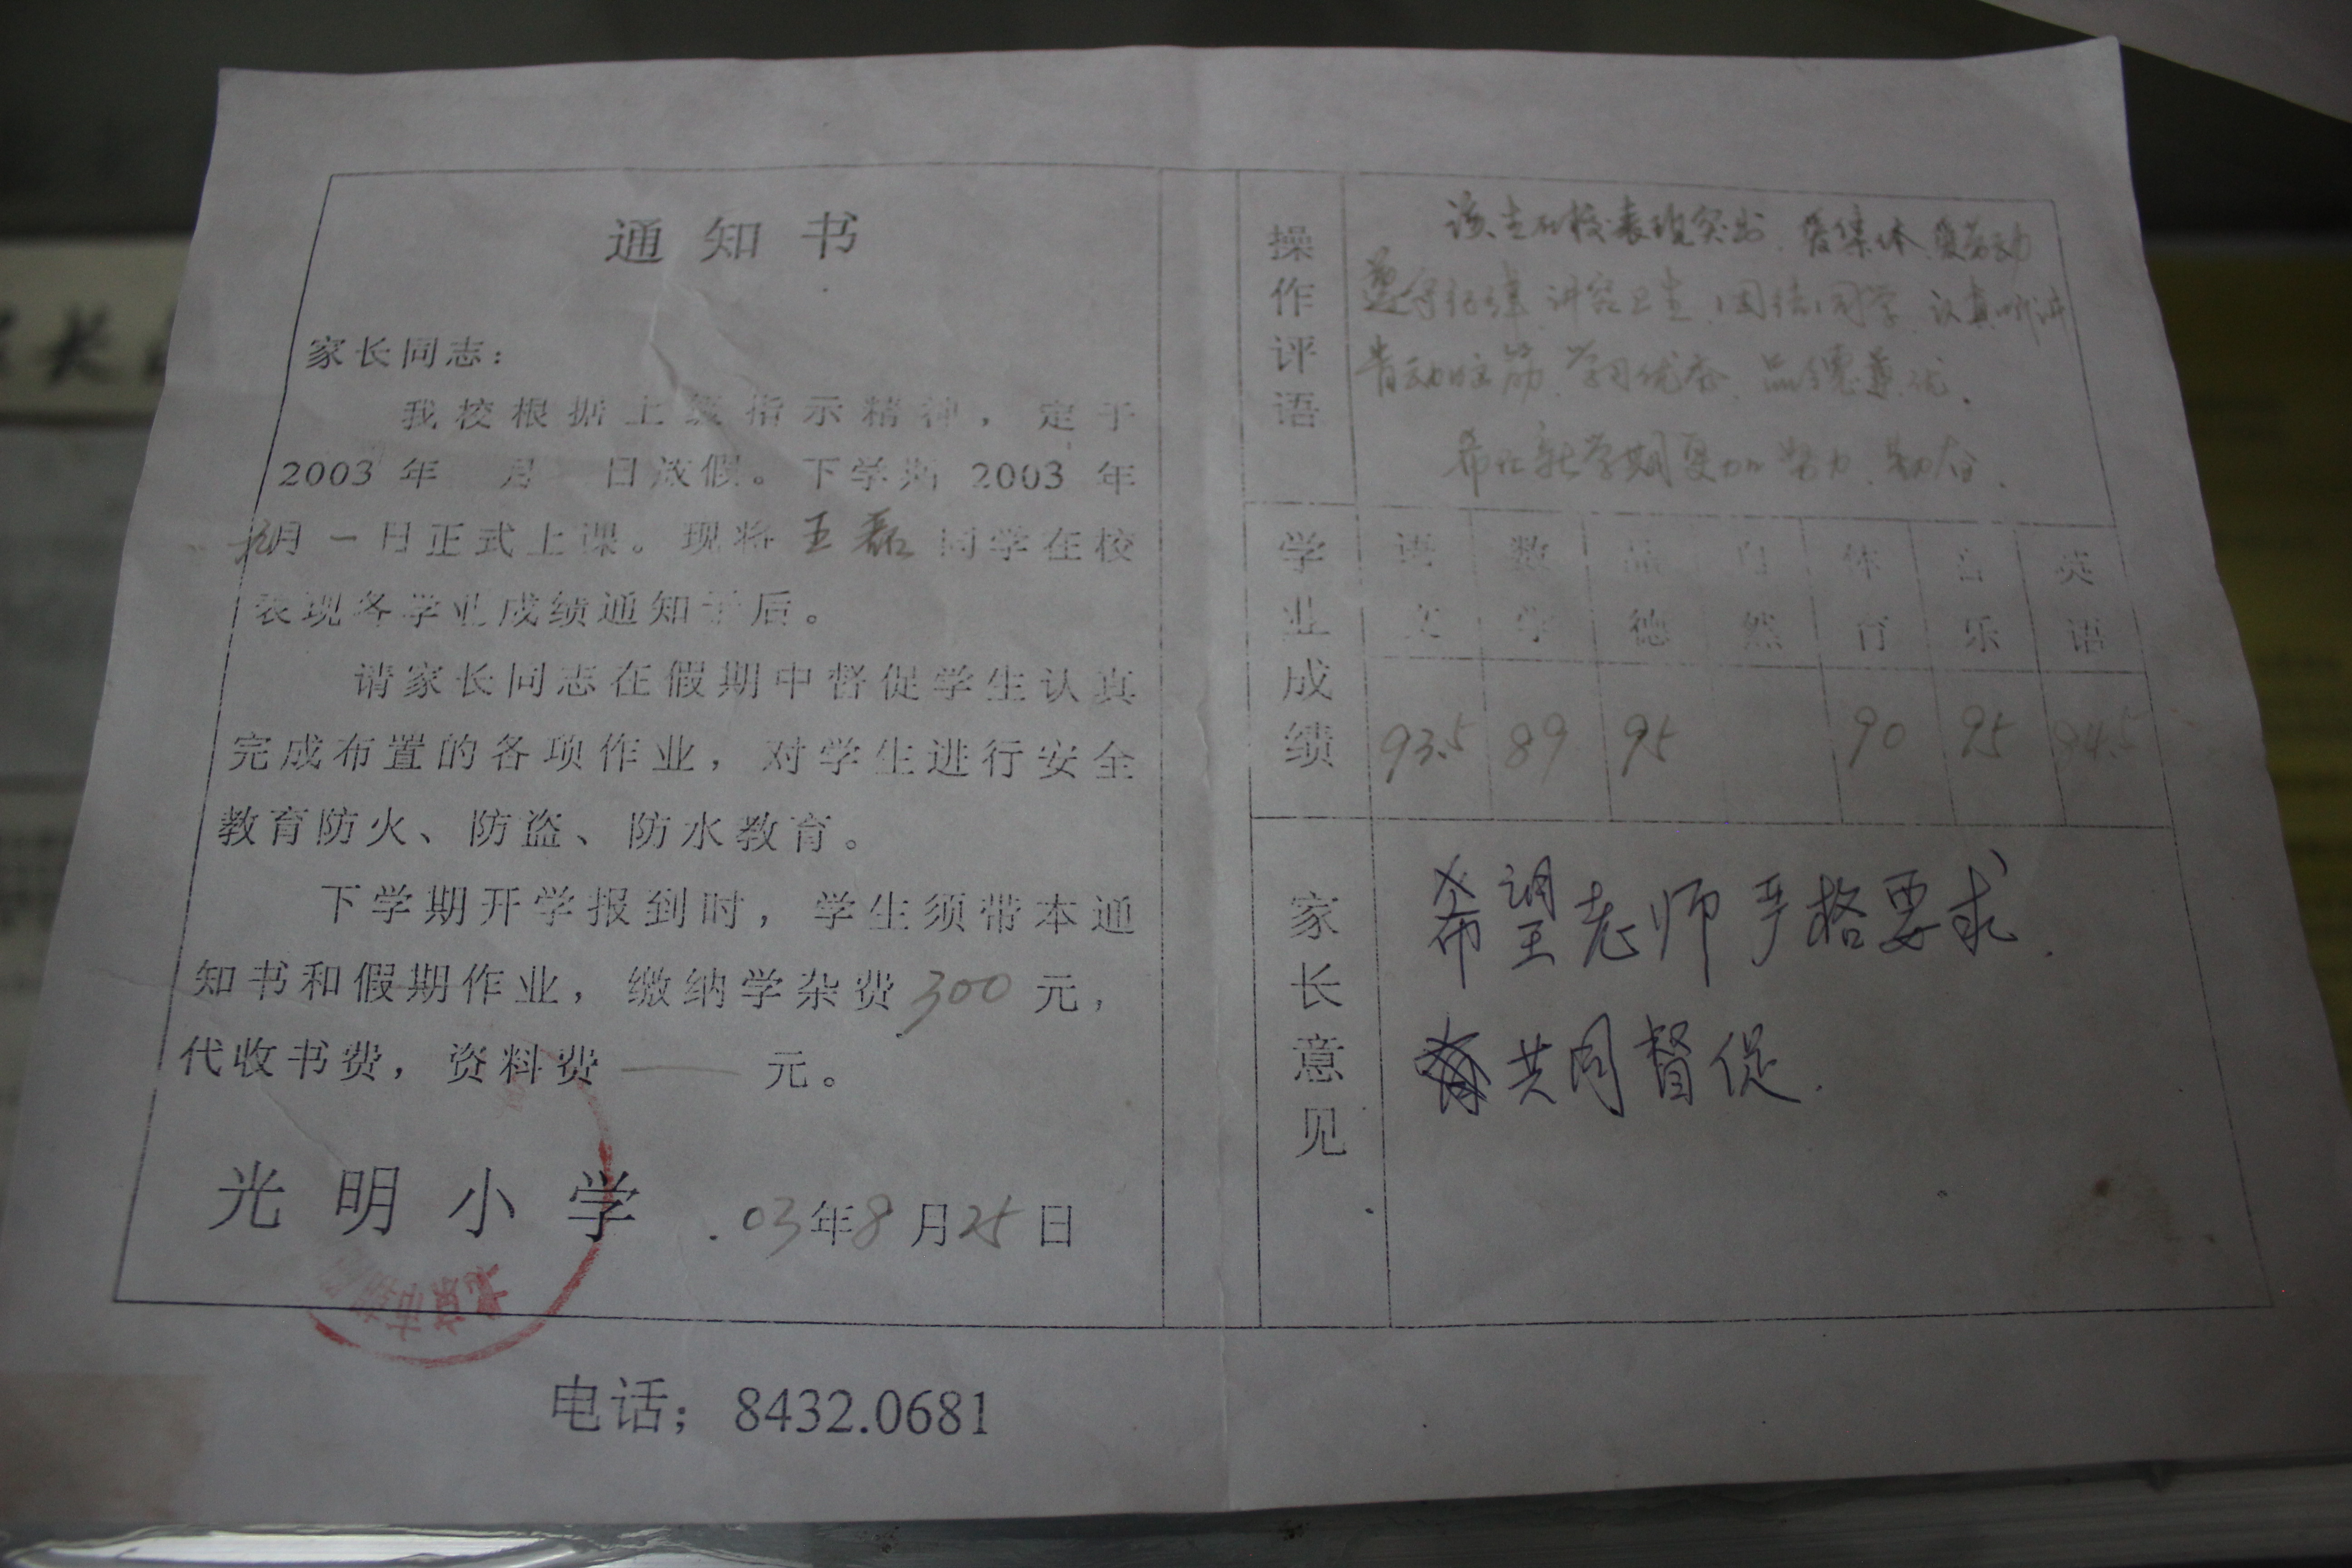 通知书
家长同志：
我校根据上级指示精神，定于
2003 年 月 日放假。下学期 2003 年
九月一日正式上课。现将 王磊 同学在校
表现各学业成绩通知于后。
请家长同志在假期中督促学生认真
完成布置的各项作业，对学生进行安全
教育防火、防盗、防水教育。
下学期开学报到时，学生须带本通
知书和假期作业，缴纳学杂费 300 元，
代收书费，资料费 —— 元。
光明小学 03年8月25日
电话；8432.0681
操作评语
该生在校表现突出、爱集体、爱劳动
遵守纪律、讲究卫生、团结同学、认真听讲
肯动脑筋、学习优秀、品德兼优.
希在新学期更加努力、勤奋.
学业成绩
语文 数学 品德 自然 体育 音乐 英语
93.5 89 95 90 95 94.5
家长意见
希望老师严格要求.
共同督促.